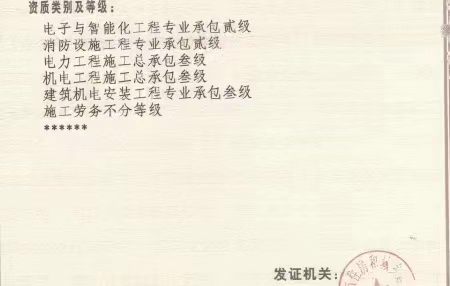 资质类别及等级：
电子与智能化工程专业承包贰级
消防设施工程专业承包贰级
电力工程施工总承包叁级
机电工程施工总承包叁级
建筑机电安装工程专业承包叁级
施工劳务不分等级
******
发证机关：